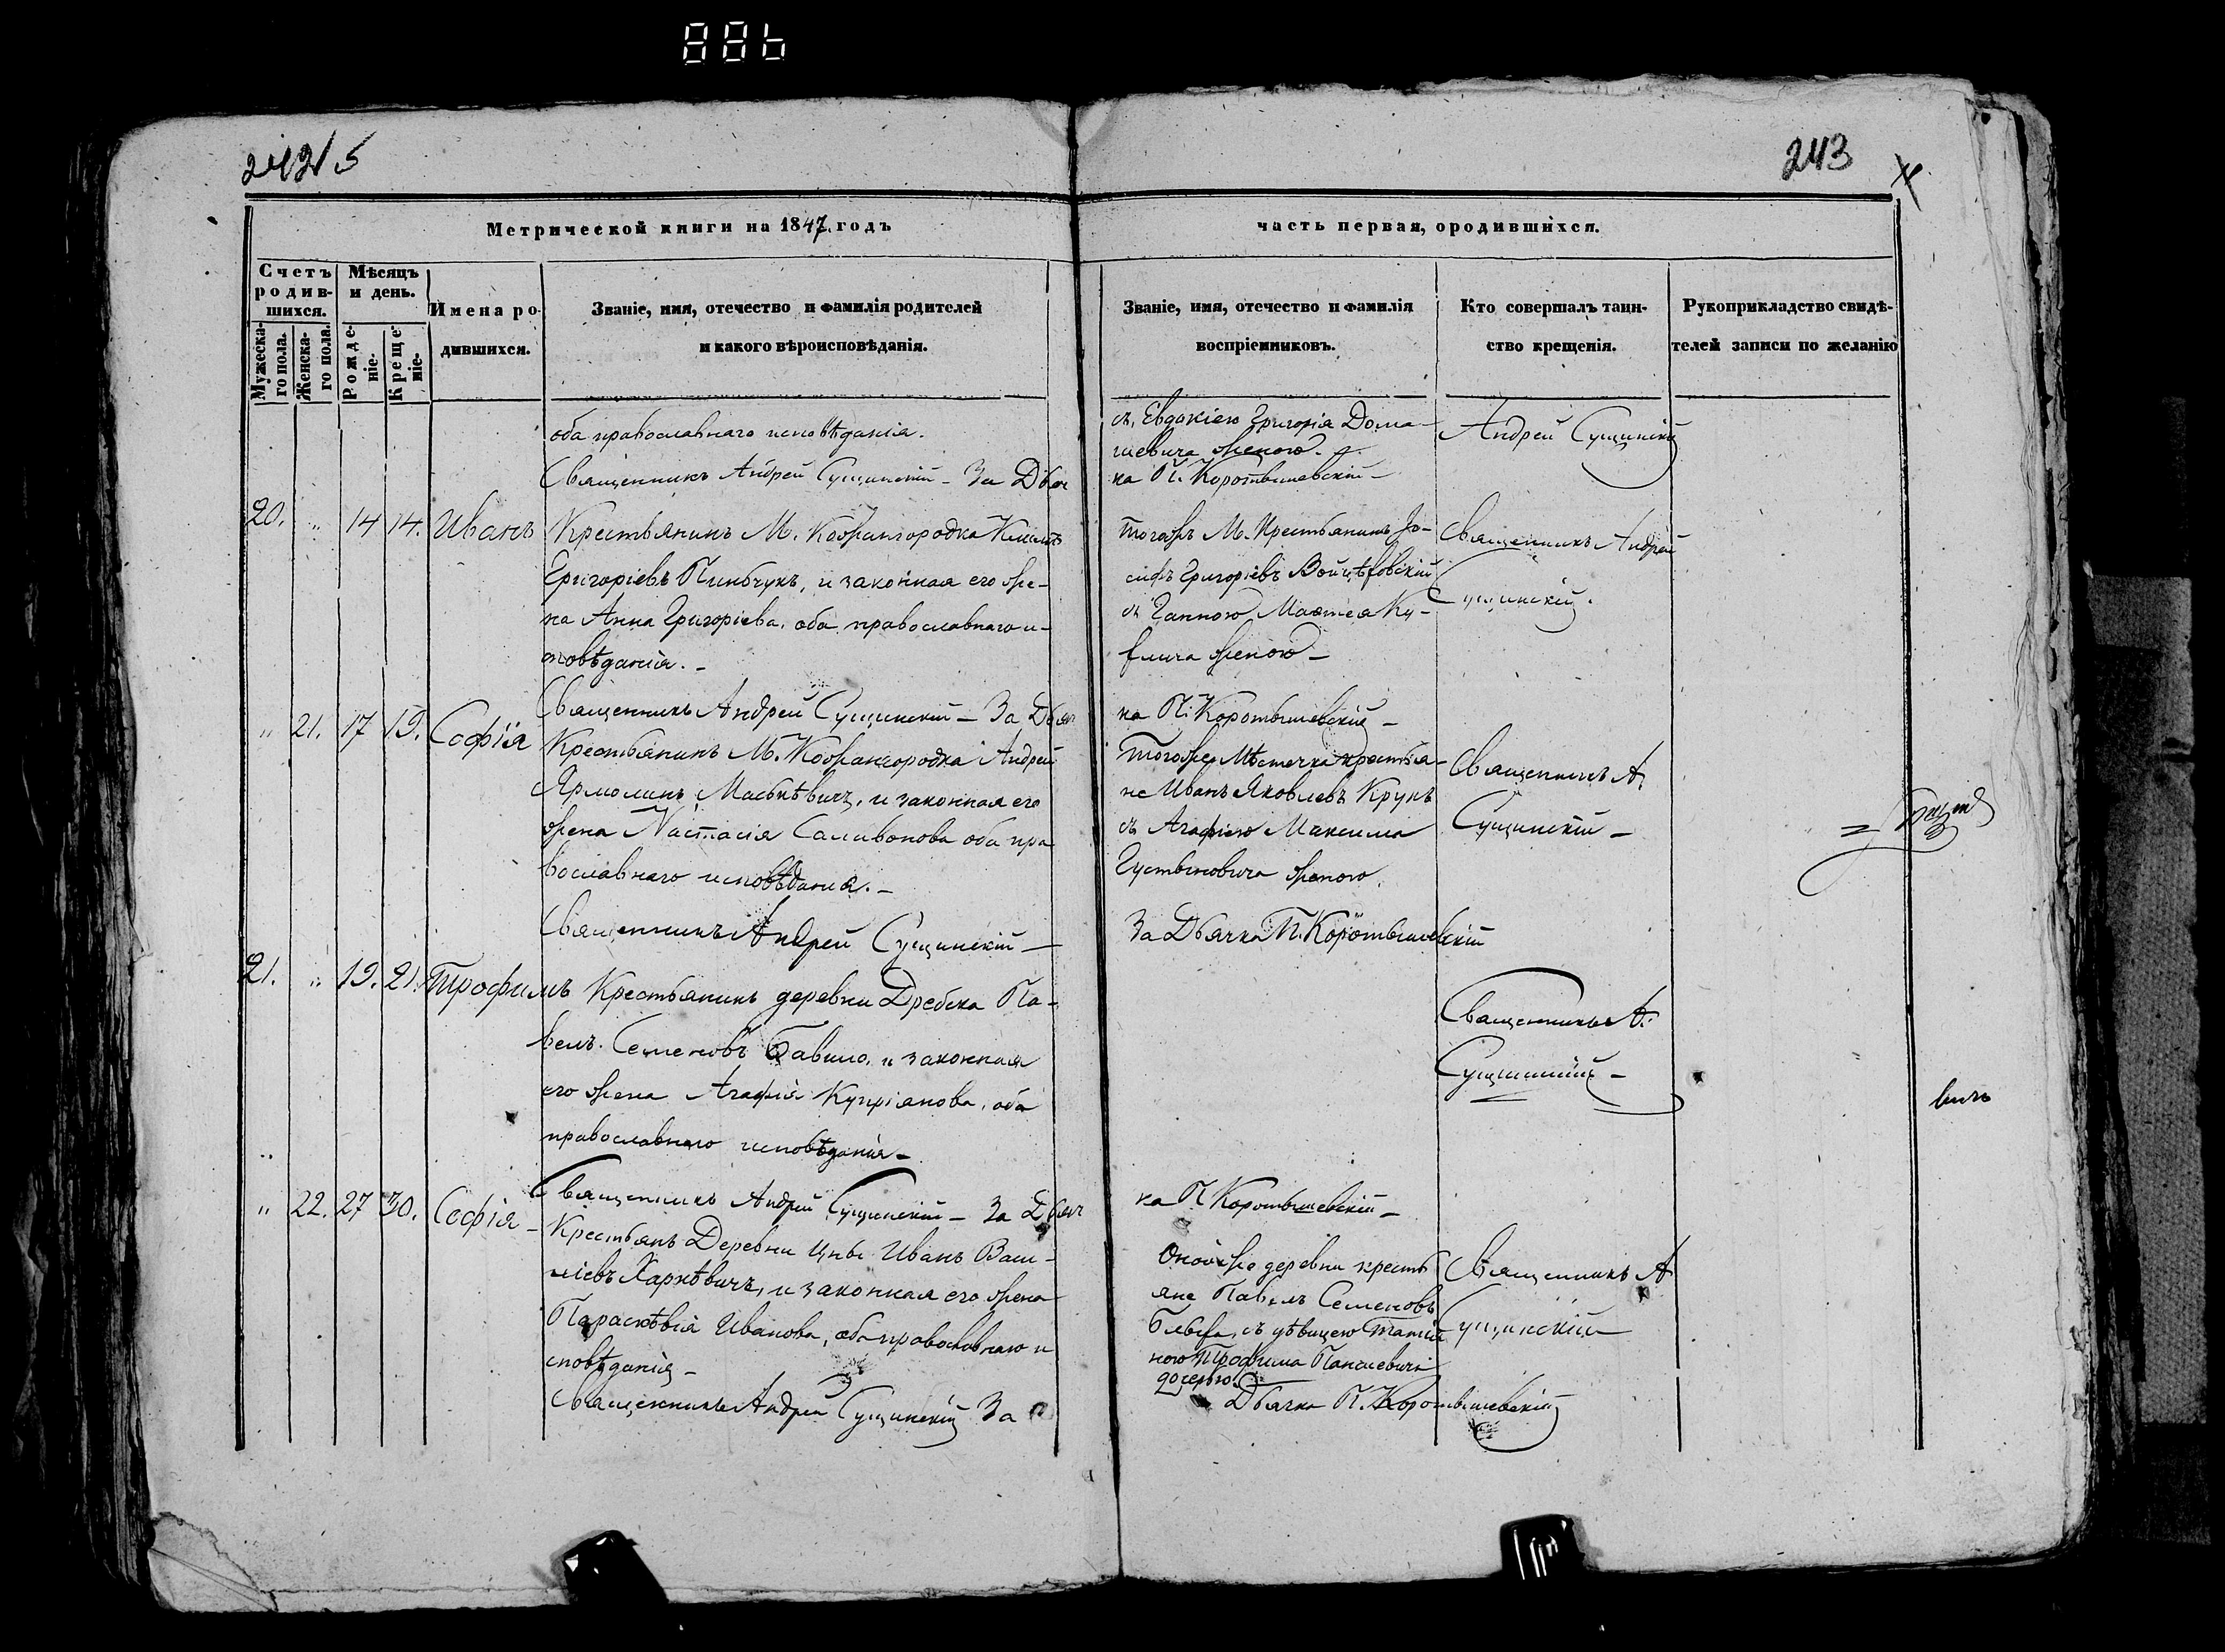 886
242 15
243
Метрической книги на 1847. годъ
часть первая, ородившихся.
Счетъ родив-
шихся.
Мѣсяцъ
и день.
Мужеска-
го пола.
Женска-
го пола.
Рожде-
ніе.
Креще-
ніе.
Имена ро-
дившихся.
Званіе, имя, отечество и фамилія родителей
и какого вѣроисповѣданія.
Званіе, имя, отечество и фамилія
воспріемниковъ.
Кто совершалъ таин-
ство крещенія.
Рукоприкладство свидѣ-
телей записи по желанію
оба православнаго исповѣданія.
Священникъ Андрей Сущинскій - За Дьяч
съ Евдокіею Григорія Дома-
шевича женою.
ка П. Коротышевскій -
Андрей Сущинскій
20. " 14 14. Иванъ
Крестьянинъ М. Кожангородка
Григоріевъ Пинчукъ, и законная его же-
на Анна Григоріева, оба православнаго и-
сповѣданія. -
Священникъ Андрей Сущинскій - За Дьяч
тогожъ М. Крестьянинъ Іо-
сифъ Григоріевъ
съ Ганною Матвея Ку-
женою -
ка П. Коротышевскій -
Священникъ Андрей
Сущинскій.
" 21. 17 19. Софія
Крестьянинъ М. Кожангородка Андрей
Ярмолинъ Маськѣвичъ, и законная его
жена Настасія Саливонова оба пра
вославнаго исповѣданія. -
Священникъ Андрей Сущинскій -
тогоже Мѣстечка крестья-
не Иванъ Яковлевъ Крукъ
съ Агафіею Максима
Густыновича женою.
За Дьячка П. Коротышевскій
Священникъ А.
Сущинскій -
21. " 19. 21. Трофимъ
Крестьянинъ деревни Дребска Па-
велъ Семеновъ Бавило, и законная
его жена Агафія Купріянова, оба
православнаго исповѣданія -
Священникъ Андрей Сущинскій - За Дьяч
ка П. Коротышевскій -
Священникъ А.
Сущинскій -
вичъ
" 22. 27 30. Софія -
Крестьянъ Деревни Цны Иванъ Васи-
ліевъ Харкѣвичъ, и законная его жена
Параскѣвія Иванова, оба православнаго и
сповѣданія -
Священникъ Андрей Сущинскій За
Оной же деревни кресть
яне Павелъ Семеновъ
съ дѣвицею Татія
ною Трофима
дочерью.
Дьячка П. Коротышевскій
Священникъ А
Сущинскій